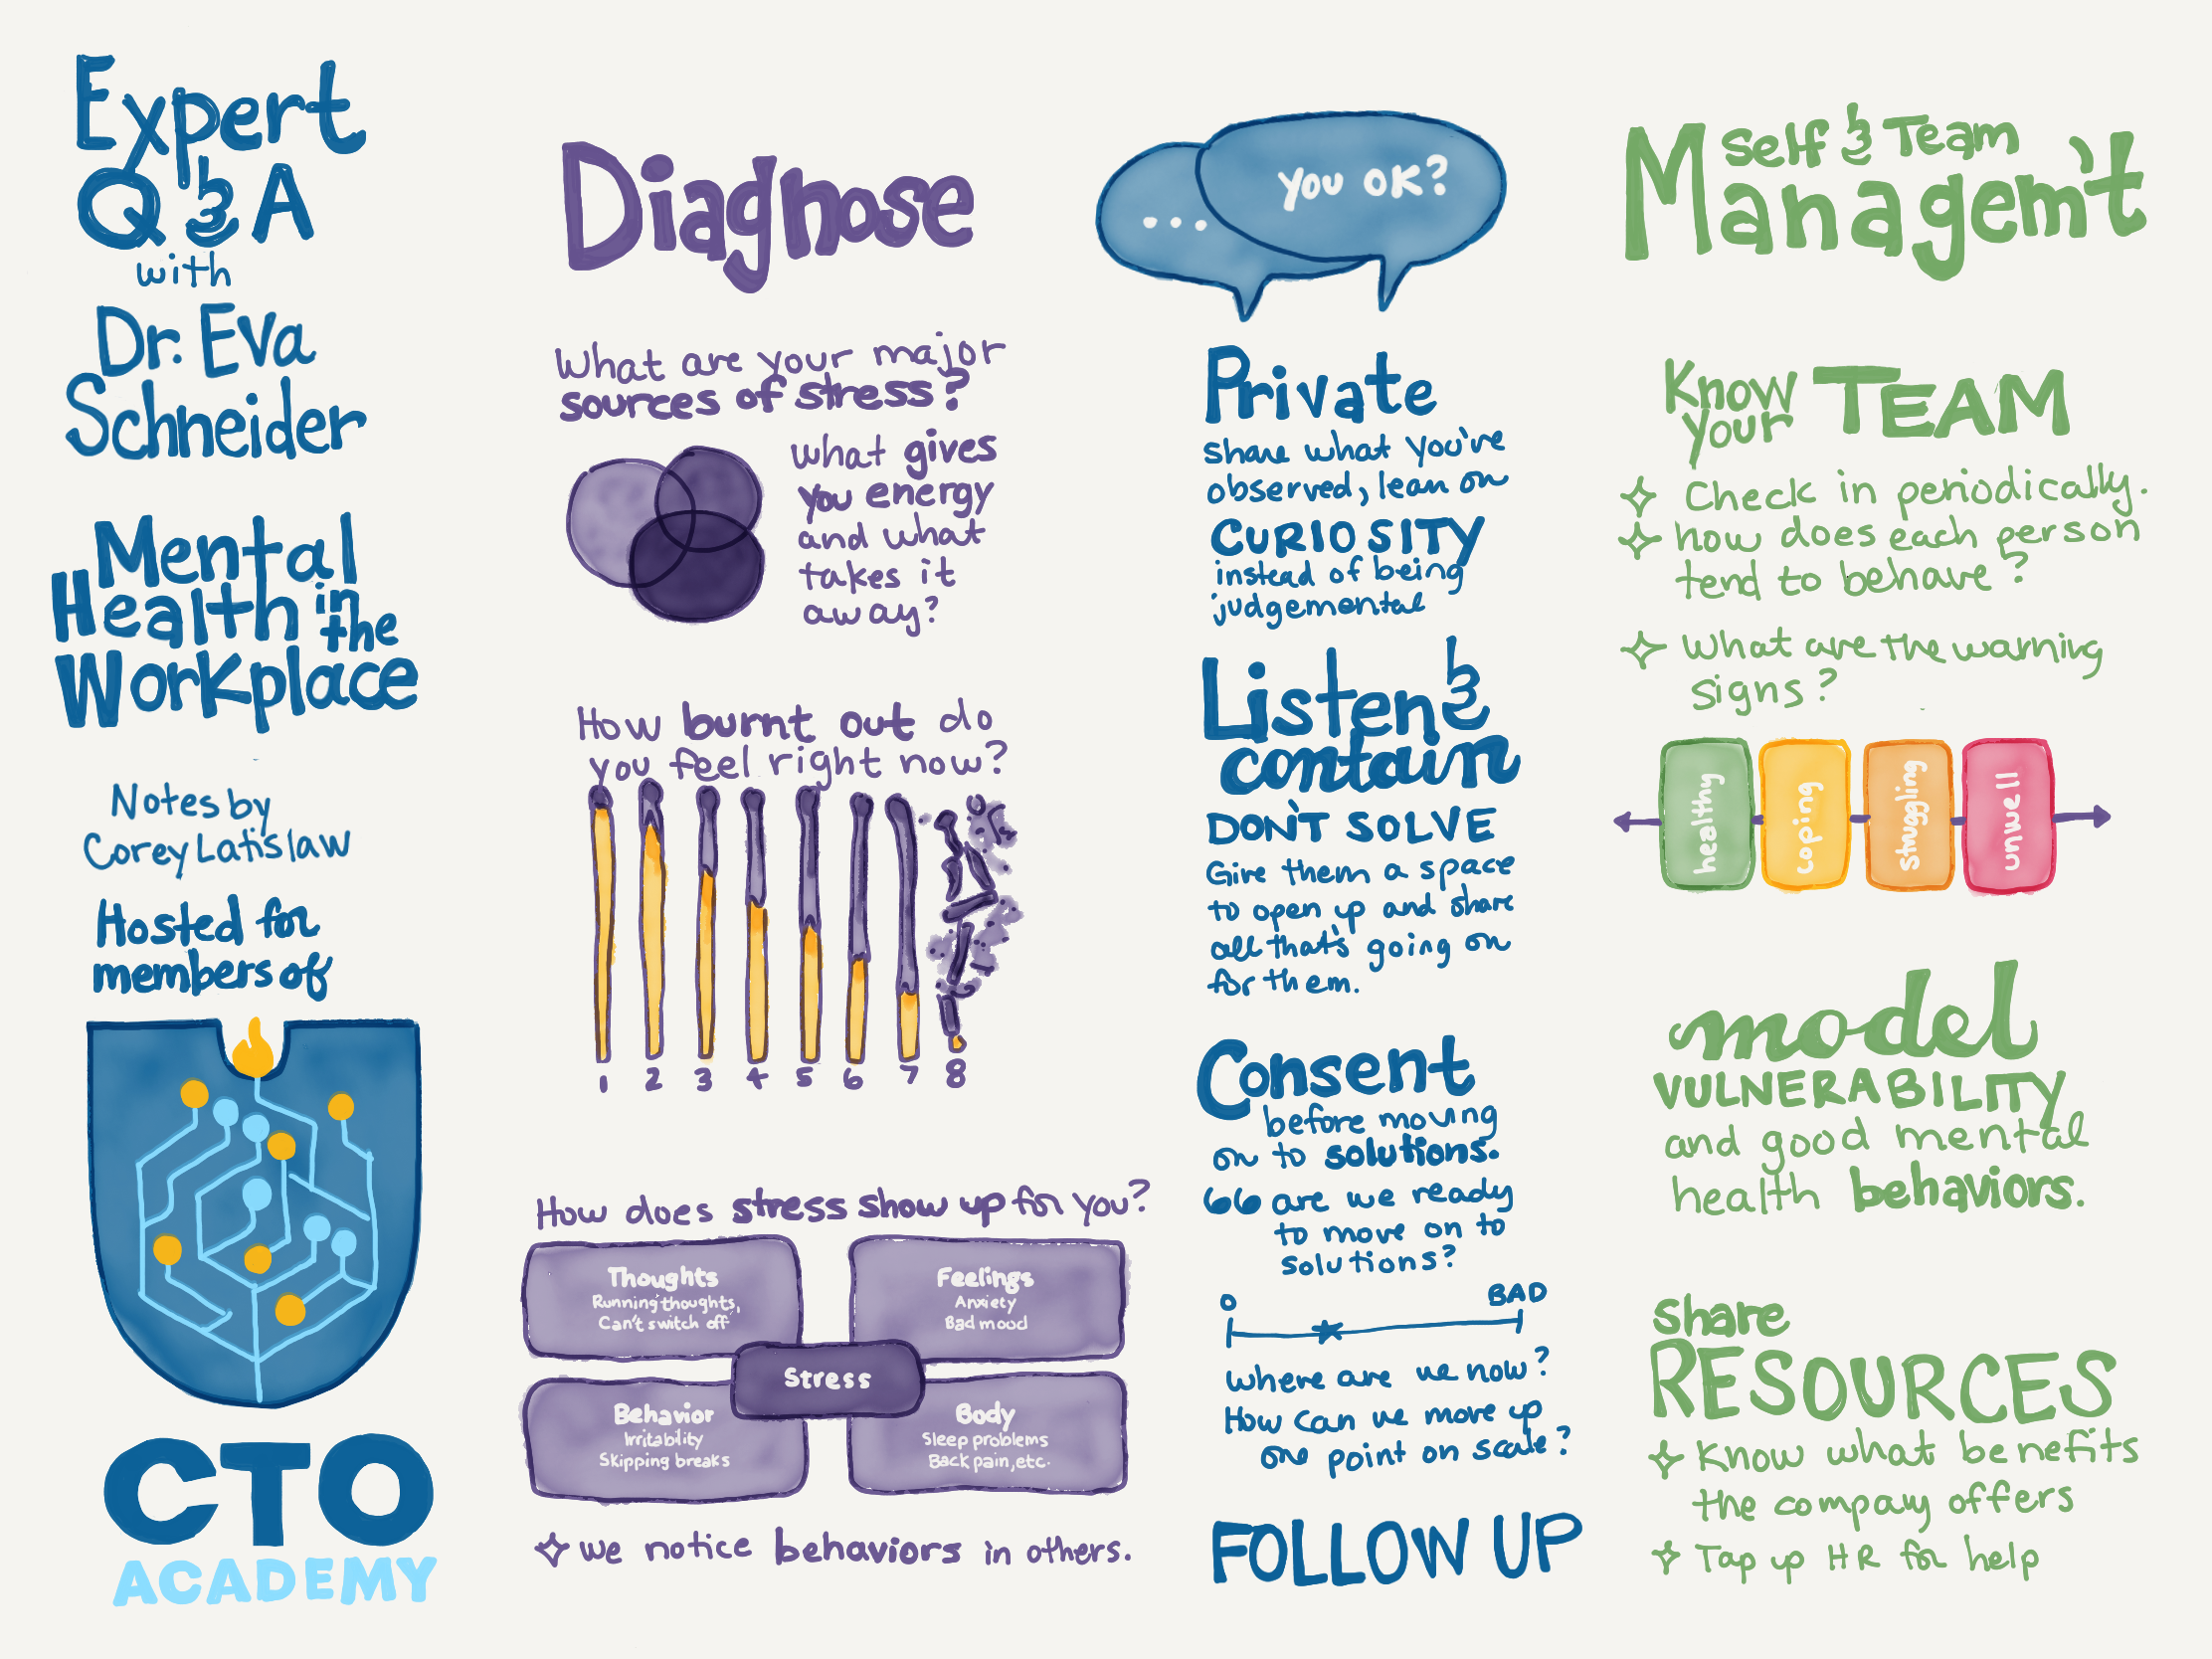 Expert
Q & A
with
Dr. Eva
Schneider
Mental
Health in the
Workplace
Notes by
Corey Latislaw
Hosted for
members of
CTO
ACADEMY
Diagnose
What are your major
sources of stress?
what gives
you energy
and what
takes it
away?
How burnt out do
you feel right now?
1 2 3 4 5 6 7 8
How does stress show up for you?
Thoughts
Running thoughts,
Can't switch off
Feelings
Anxiety
Bad mood
Stress
Behavior
Irritability
Skipping breaks
Body
Sleep problems
Back pain, etc.
we notice behaviors in others.
...
you OK?
Private
share what you've
observed, lean on
CURIOSITY
instead of being
judgemental
Listen &
contain
DON'T SOLVE
Give them a space
to open up and share
all that's going on
for them.
Consent
before moving
on to solutions.
66 are we ready
to move on to
solutions?
0 BAD
Where are we now?
How can we move up
one point on scale?
FOLLOW UP
Self & Team
Managem't
Know
your TEAM
Check in periodically.
how does each person
tend to behave?
What are the warning
signs?
healthy
coping
struggling
unwell
model
VULNERABILITY
and good mental
health behaviors.
share
RESOURCES
Know what benefits
the company offers
Tap up HR for help